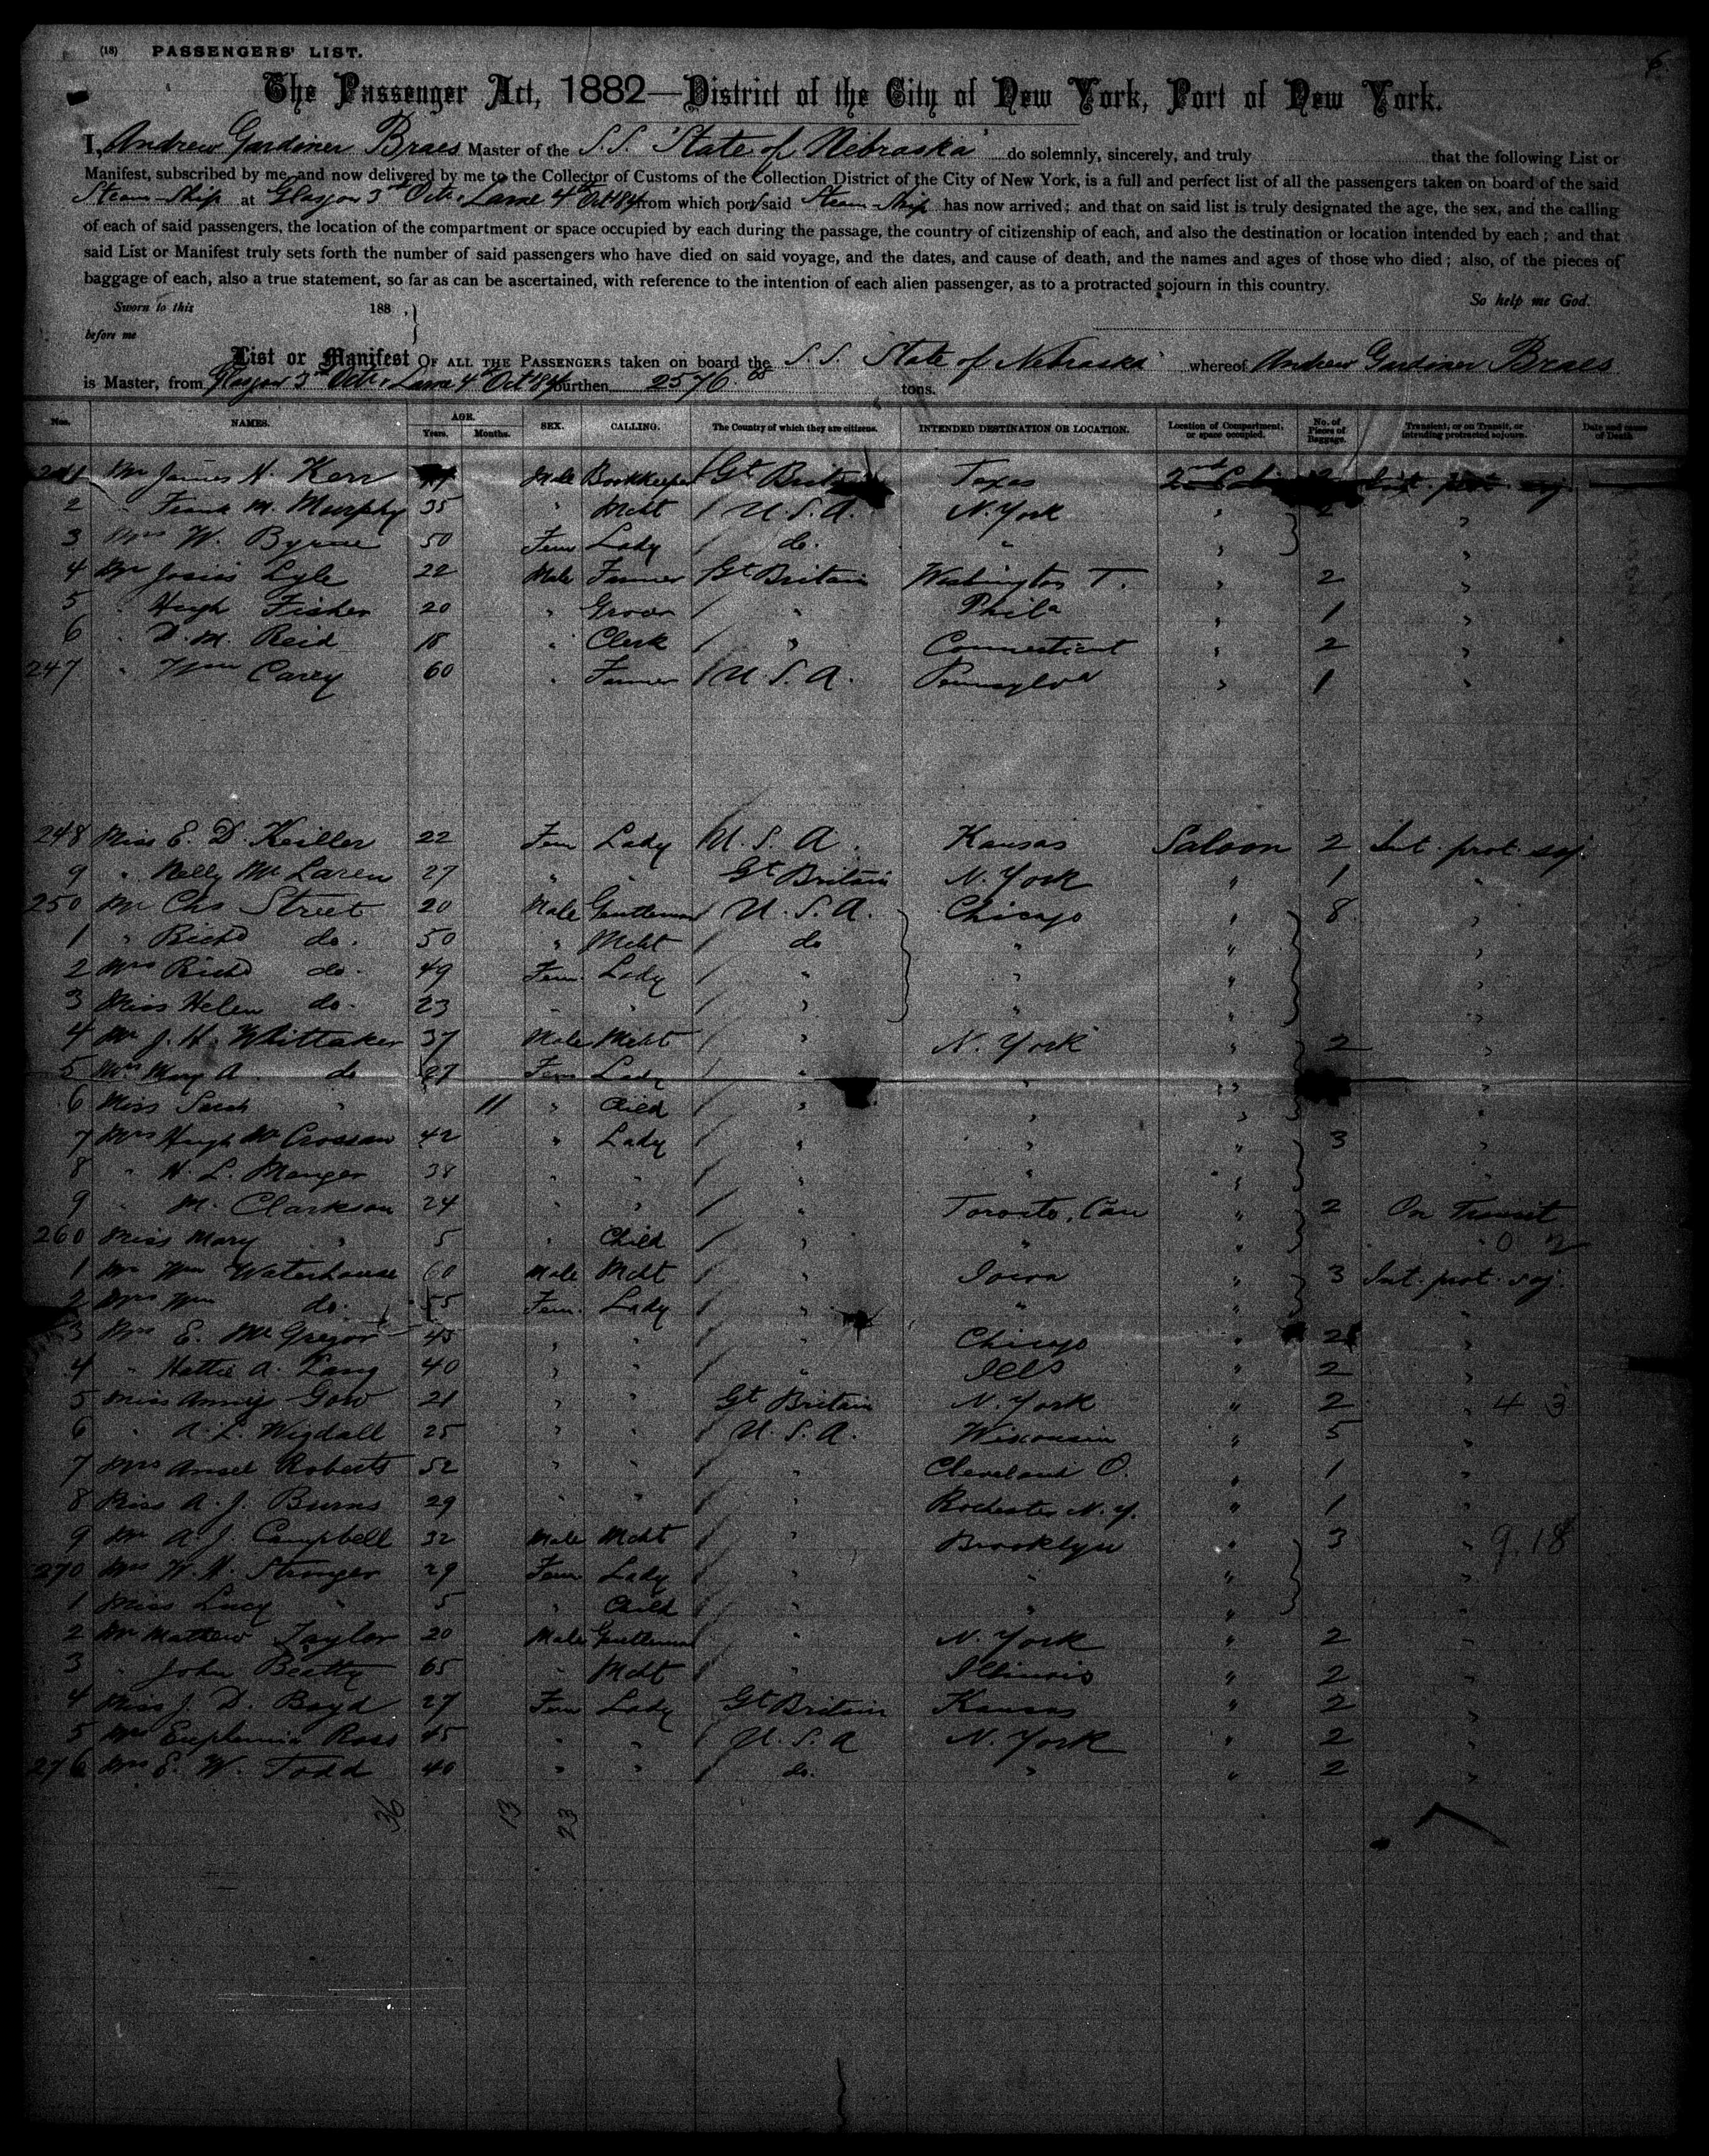 (18) PASSENGERS' LIST. 6
The Passenger Act, 1882—District of the City of New York, Port of New York.
I, Andrew Gardiner Braes Master of the S.S. "State of Nebraska" do solemnly, sincerely, and truly that the following List or
Manifest, subscribed by me, and now delivered by me to the Collector of Customs of the Collection District of the City of New York, is a full and perfect list of all the passengers taken on board of the said
Steam-Ship at Glasgow 3rd Oct. Larne 4th Oct 84 from which port said Steam-Ship has now arrived; and that on said list is truly designated the age, the sex, and the calling
of each of said passengers, the location of the compartment or space occupied by each during the passage, the country of citizenship of each, and also the destination or location intended by each; and that
said List or Manifest truly sets forth the number of said passengers who have died on said voyage, and the dates, and cause of death, and the names and ages of those who died; also, of the pieces of
baggage of each, also a true statement, so far as can be ascertained, with reference to the intention of each alien passenger, as to a protracted sojourn in this country. So help me God.
Sworn to this 188 ,
before me
List or Manifest OF ALL THE PASSENGERS taken on board the S.S. State of Nebraska whereof Andrew Gardiner Braes
is Master, from Glasgow 3rd Oct. Larne 4 Oct 84 burthen 2576 tons.
Nos. NAMES. AGE. Years. Months. SEX. CALLING. The Country of which they are citizens. INTENDED DESTINATION OR LOCATION. Location of Compartment, or space occupied. No. of Pieces of Baggage. Transient, or on Transit, or intending protracted sojourn. Date and cause of Death
241 Mr James N. Kerr Male Bookkeeper Gt Britain Texas 2nd Cabin 2 Int. prot. soj.
2 " Frank M. Murphy 35 " Mcht U.S.A. N. York " 2 "
3 Mrs W. Byrne 50 Fem Lady do. " " "
4 Mr Josias Lyle 22 Male Farmer Gt Britain Washington T. " 2 "
5 " Hugh Fisher 20 " Grocer " Phila " 1 "
6 " D. M. Reid 18 " Clerk " Connecticut " 2 "
247 " Wm Carey 60 " Farmer U.S.A. Pennsylva " 1 "
248 Miss E. D. Keiller 22 Fem Lady U.S.A. Kansas Saloon 2 Int. prot. soj.
9 " Nelly McLaren 27 " " Gt Britain N. York " 1 "
250 Mr Chs Street 20 Male Gentleman U.S.A. Chicago " 8 "
1 " Richd do. 50 " Mcht do " " "
2 Mrs Richd do. 49 Fem. Lady " " " "
3 Miss Helen do. 23 " " " " " "
4 Mr J. H. Whittaker 37 Male Mcht " N. York " 2 "
5 Mrs Mary A. do 27 Fem Lady " " " "
6 Miss Sarah " 11 " Child " " " "
7 Mrs Hugh McCrossan 42 " Lady " " " 3 "
8 " H. L. Manger 38 " " " " " "
9 " M. Clarkson 24 " " " Toronto, Can " 2 On Transit
260 Miss Mary " 5 " Child " " " " 0 2
1 Mr Wm Waterhouse 60 Male Mcht " Iowa " 3 Int. prot. soj.
2 Mrs Wm do. 55 Fem. Lady " " " "
3 Mrs E. McGregor 45 " " " Chicago " 2 "
4 " Hattie A. Lang 40 " " " Ills " 2 "
5 Miss Annie Gow 21 " " Gt Britain N. York " 2 " 4 3
6 " A. L. Wigdall 25 " " U.S.A. Wisconsin " 5 "
7 Mrs Ansel Roberts 52 " " " Cleveland O. " 1 "
8 Miss A. J. Burns 29 " " " Rochester N.Y. " 1 "
9 Mr A. J. Campbell 32 Male Mcht " Brooklyn " 3 " 9.18
270 Mrs W. H. Stronger 29 Fem Lady " " " "
1 Miss Lucy " 5 " Child " " " "
2 Mr Mathew Taylor 20 Male Gentleman " N. York " 2 "
3 " John Beatty 65 " Mcht " Illinois " 2 "
4 Miss J. D. Boyd 27 Fem Lady Gt Britain Kansas " 2 "
5 Mrs Euphemia Ross 45 " " U.S.A N. York " 2 "
276 Mrs E. W. Todd 40 " " do. " " 2 "
36 13 23